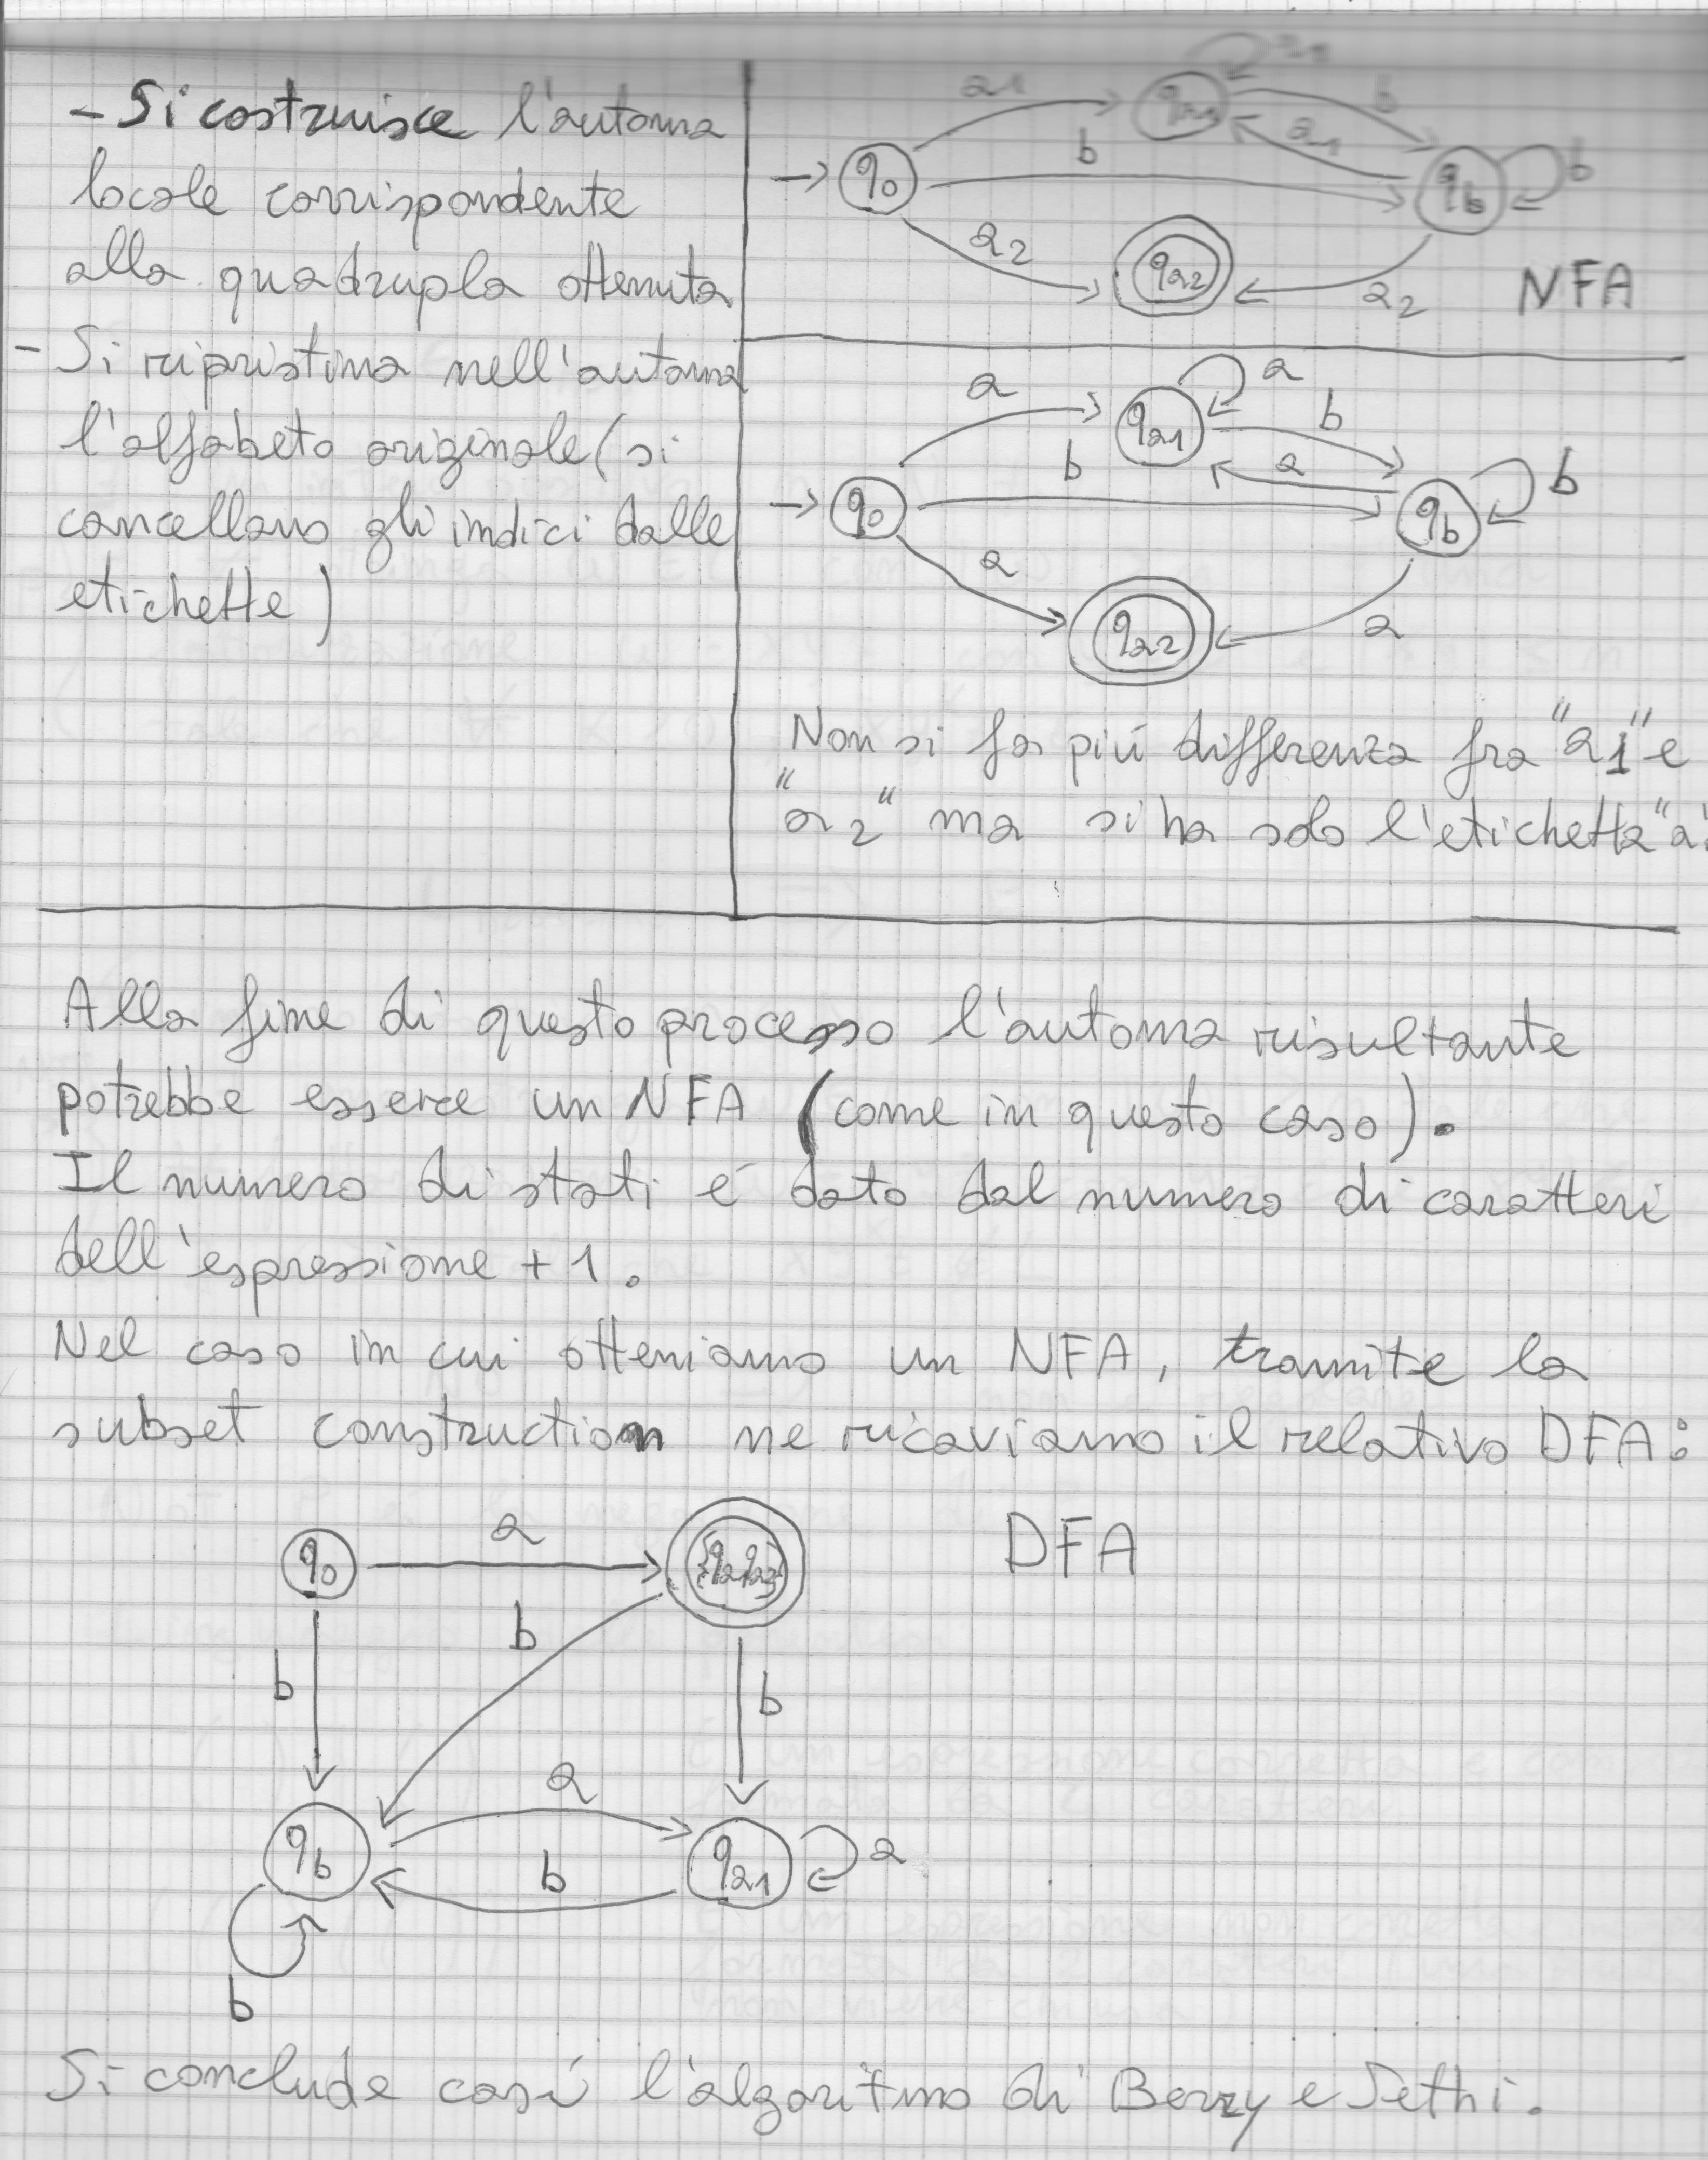 - Si costruisce l'automa
locale corrispondente
alla quadrupla ottenuta
- Si ripristina nell'automa
l'alfabeto originale (si
cancellano gli indici dalle
etichette)
a1
b
b
a1
b
q0
qb
a2
qa2
a2
NFA
a
a
qa1
b
b
a
b
q0
qb
a
qa2
a
Non si fa più differenza fra "a1" e
"a2" ma si ha solo l'etichetta "a".
Alla fine di questo processo l'automa risultante
potrebbe essere un NFA (come in questo caso).
Il numero di stati é dato dal numero di caratteri
dell'espressione + 1.
Nel caso in cui otteniamo un NFA, tramite la
subset construction ne ricaviamo il relativo DFA:
q0
a
DFA
b
b
b
a
qb
qa1
a
b
b
Si conclude così l'algoritmo di Berry e Sethi.